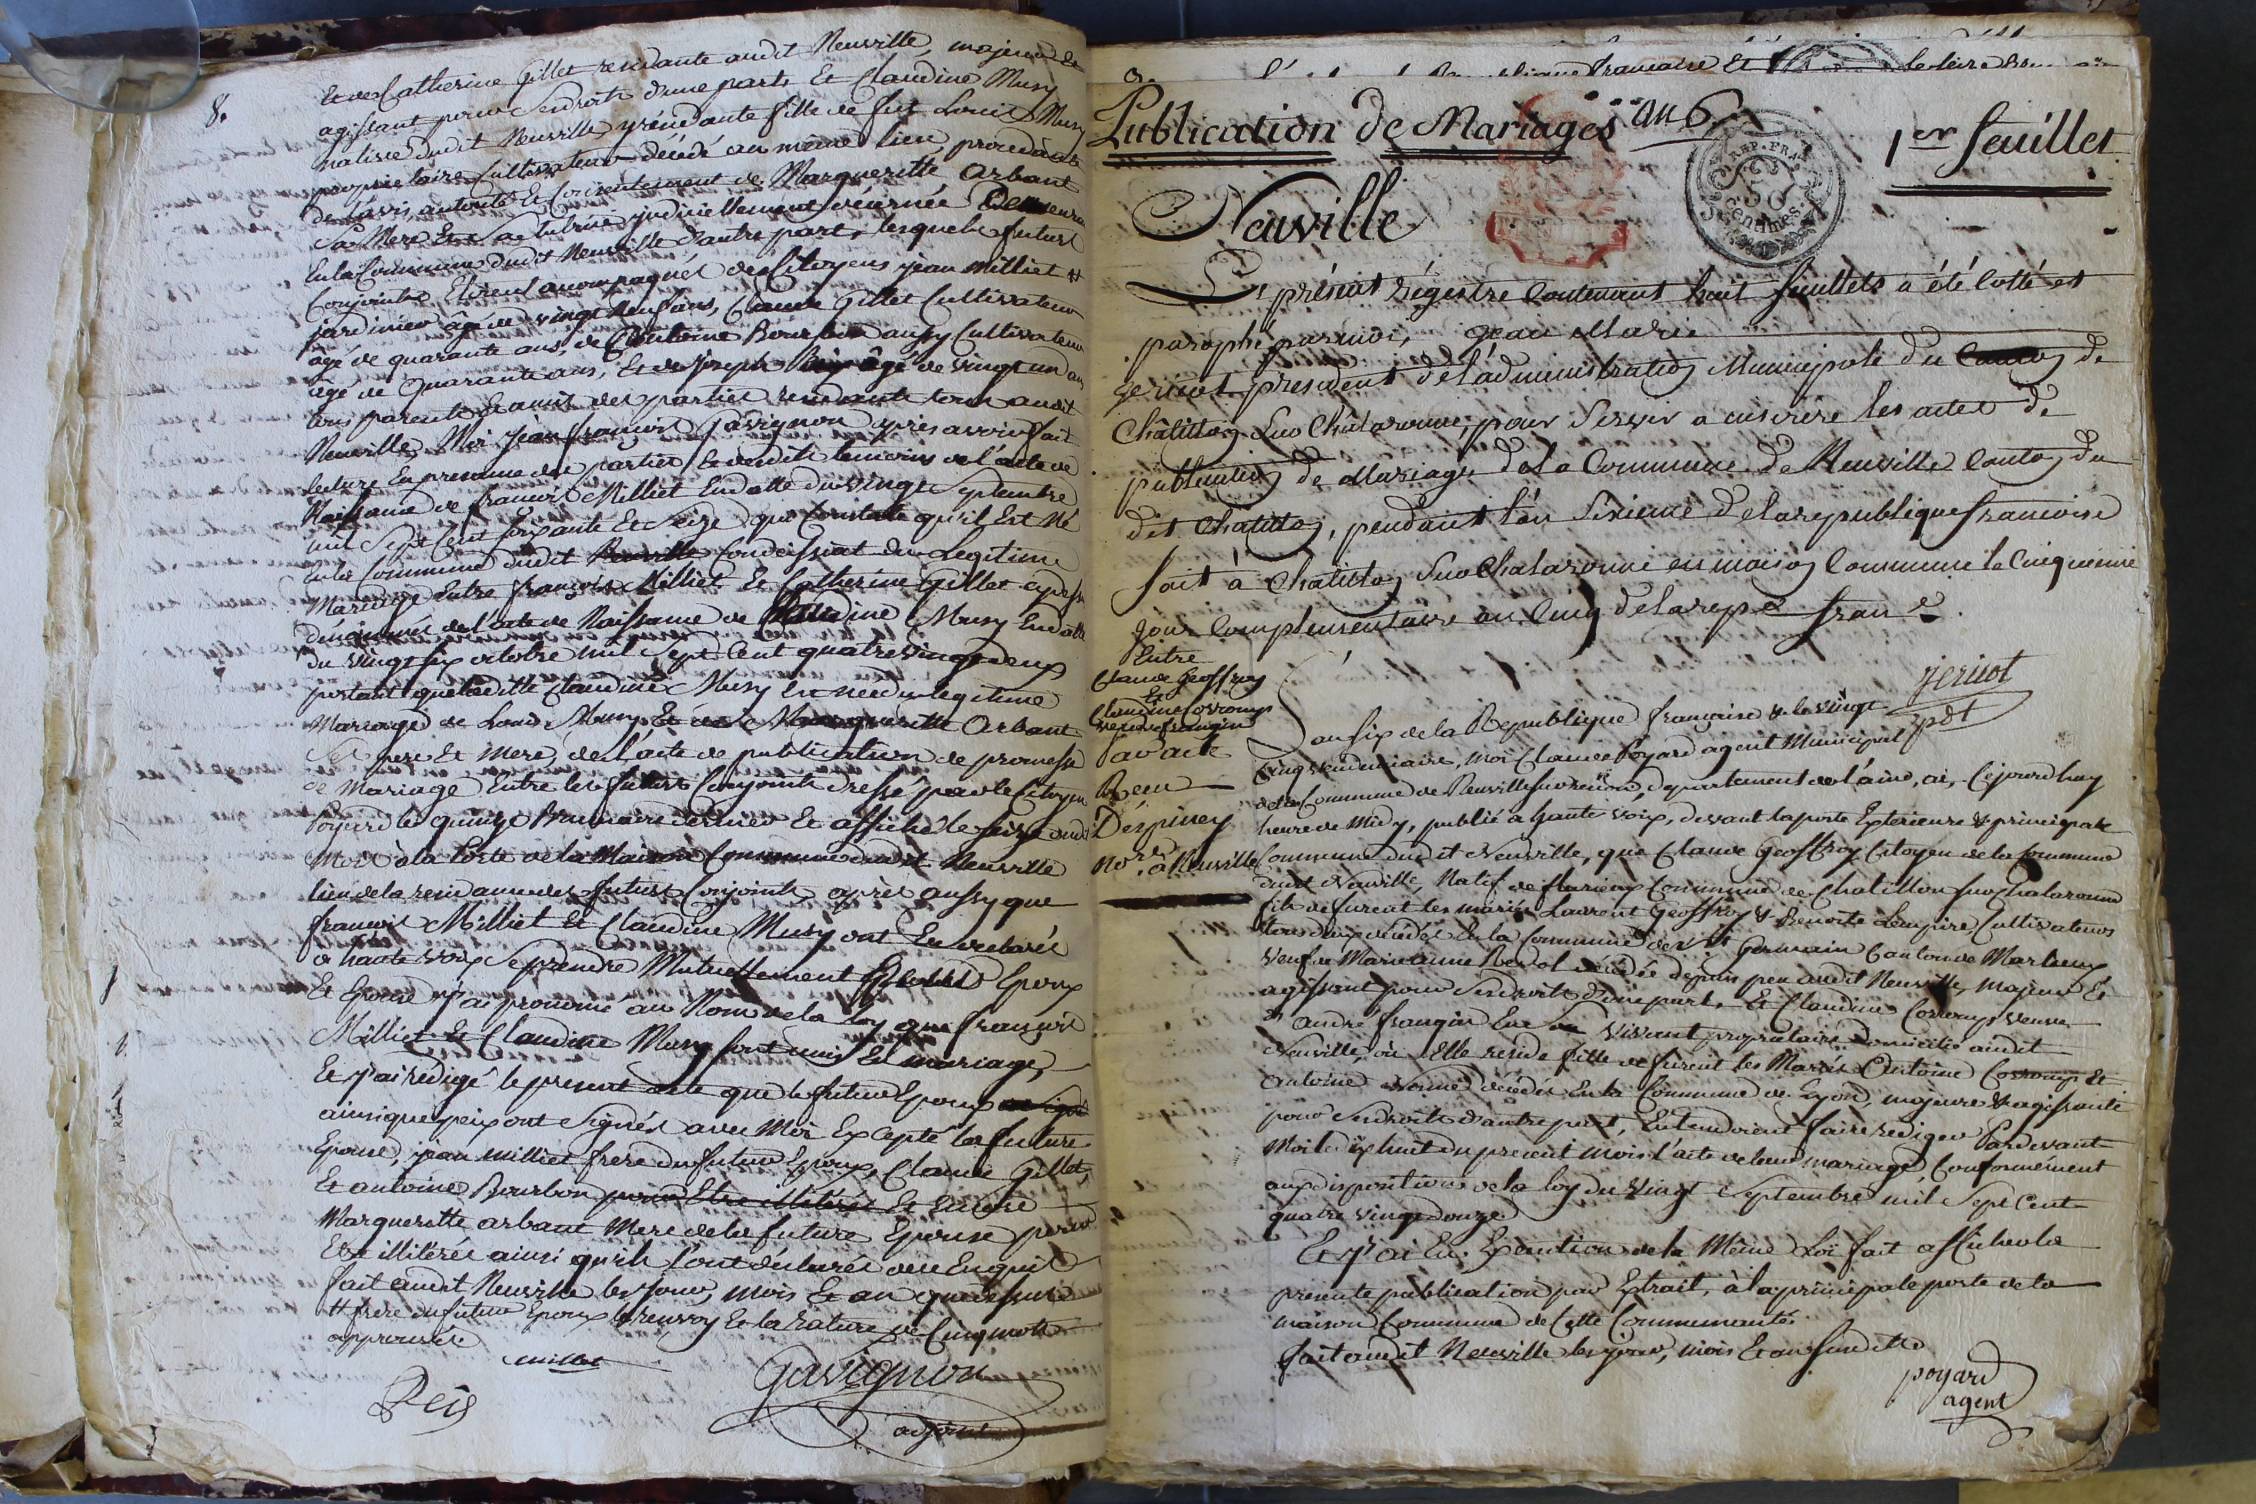 8.
Et de Catherine Gillet residante audit Neuville, majeur Et
agissant pour ses droits d'une part Et Claudine Musy
native dudit Neuville y residante fille de fut Louis Musy
proprietaire Cultivateur décédé au même lieu, procedante
de l'avis, autorité Et Consentement de Margueritte Arbant
Sa Mere Et Sa tutrice judiciellement décernée Demeurant
En la Commune dudit Neuville d'autre part, lesquels futurs
Conjoints Etoient accompagnés des Citoyens jean Milliet #
jardinier âgé de vingt neuf ans, Claude Gillet Cultivateur
agé de quarante ans, de Antoine Bourbon aussy Cultivateur
âgé de Quarante ans, Et de Joseph âgé de vingt un ans
tous parents Et amis des parties residants tous audit
Neuville, Moi jean françois Gavignon après avoir fait
lecture En presence des parties Et desdits temoins de l'acte de
Naissance de françois Milliet En datte du vingt Septembre
mil Sept Cent soixante Et seize qui Constate qu'il Est Né
En la Commune dudit Neuville du Legitime
Mariage Entre françois Milliet Et Catherine Gillet cydessus
dénommés de l'acte de Naissance de Claudine Musy En datte
du vingt six octobre mil Sept Cent quatrevingt deux
portant que laditte Claudine Musy Est née du legitime
Mariage de Louis Musy Et de Margueritte Arbant
Ses pere Et Mere, de l'acte de publication de promesse
de Mariage Entre les futurs Conjoints dressé par le Citoyen
Poyard le quinze Brumaire dernier Et affiché le seize dudit
Mois à la Porte de la Maison Commune dudit Neuville
lieu de la residance des futurs Conjoints, après aussy que
françois Milliet Et Claudine Musy ont Eu declarés
à haute voix se prendre Mutuellement Epoux
Et Epouse j'ai prononcé au Nom de la loy que françois
Milliet Et Claudine Musy sont unis En mariage,
Et j'ai rédigé le present acte que le futur Epoux
ainsi que ont Signés avec Moi Excepté la future
Epouse, jean Milliet frere du futur Epoux, Claude Gillet
Et antoine Bourbon pour Etre illiterés Et Encore
Margueritte arbant Mere de la future Epouse pour
Etre illiterés ainsi qu'ils l'ont déclarés de ce Enquis
fait audit Neuville les jour, mois Et an que dessus
# frere du futur Epoux le renvoy Et la rature de Cinq mots
approuvée
millet
Gavignon
Reis
adjoint
Publication de Mariages an 6
1er feuillet
REP. FRA.
50
Centimes
Neuville
Le présent régistre Contenant huit feuillets a été Cotté et
paraphé par moi, Jean Marie
Jerinot president de l'administration Municipale du Canton de
Châtillon Sur Chalaronne, pour Servir a inscrire les actes de
publication de Mariage de la Commune de Neuville Canton du
dit Chatillon, pendant l'an Sixieme de la republique francoise
fait à Chatillon Sur Chalaronne en maison Commune le Cinquieme
jour Complementaire an Cinq de la repe. frane.
Jerinot
pdt
Entre
Claude Geoffroy
Et
Claudine Corronp
veuve frangin
Par acte
Reçu
Despiney
Nore. à Neuville
L'an six de la Republique française & le vingt
Cinq vendemiaire, moi Claude Poyard agent Municipal
de la Commune de Neuville sur renon, departement de l'ain, ai, Cejourdhuy
heure de Midy, publié à haute voix, devant la porte Exterieure & principale
Commune dudit Neuville, que Claude Geoffroy Citoyen de la Commune
dudit Neuville, Natif de fleurieux Commune de Chatillon sur Chalaronne
fils de furent les mariés Laurent Geoffroy & Benoite Lempire Cultivateurs
tous deux décédés En la Commune de St. Germain Canton de Marlieux
veuf de Marie anne Berdol décédée depuis peu audit Neuville, Majeur Et
agissant pour Ses droits d'une part, Et Claudine Corronp veuve
d'andré frangin En Son vivant proprietaire Domicilié audit
Neuville, où Elle reside fille de furent les Mariés Antoine Corronp Et
Antoine décédés En la Commune de Lyon, majeure & agissante
pour Ses droits d'autre part, Entendoient faire rediger Pardevant
Moi le dixhuit du present mois l'acte de leur mariage Conformément
aux dispositions de la loy du vingt Septembre mil Sept Cent
quatre vingt douze
Et j'ai En Execution de la Même Loi fait afficher la
presente publication par Extrait, à la principale porte de la
maison Commune de Cette Communauté.
fait audit Neuville les jour, mois Et an Susdits
poyard
agent